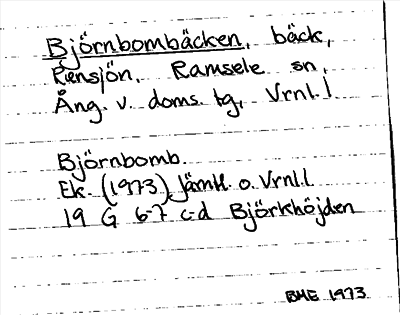 Björnbombäcken, bäck,
Rensjön, Ramsele sn,
Ång. v. doms. tg, Vrnl. l
Björnbomb.
Ek. (1973) Jämtl. o. Vrnl. l
19 G 6-7 c-d Björkhöjden
BME 1973